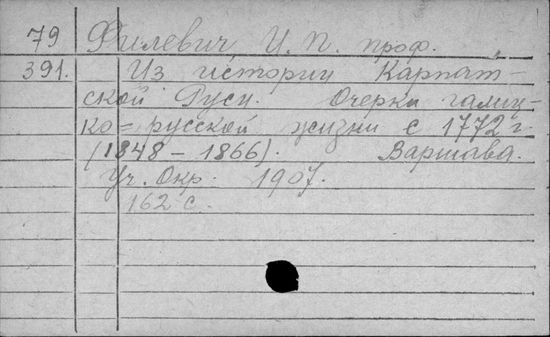 79 Филевич, И. П. проф.
391. Из истории Карпат-
ской Руси. Очерки галиц-
ко=русской жизни с 1772 г.
(1848 - 1866). Варшава.
Уч. Окр. 1907.
162 с.